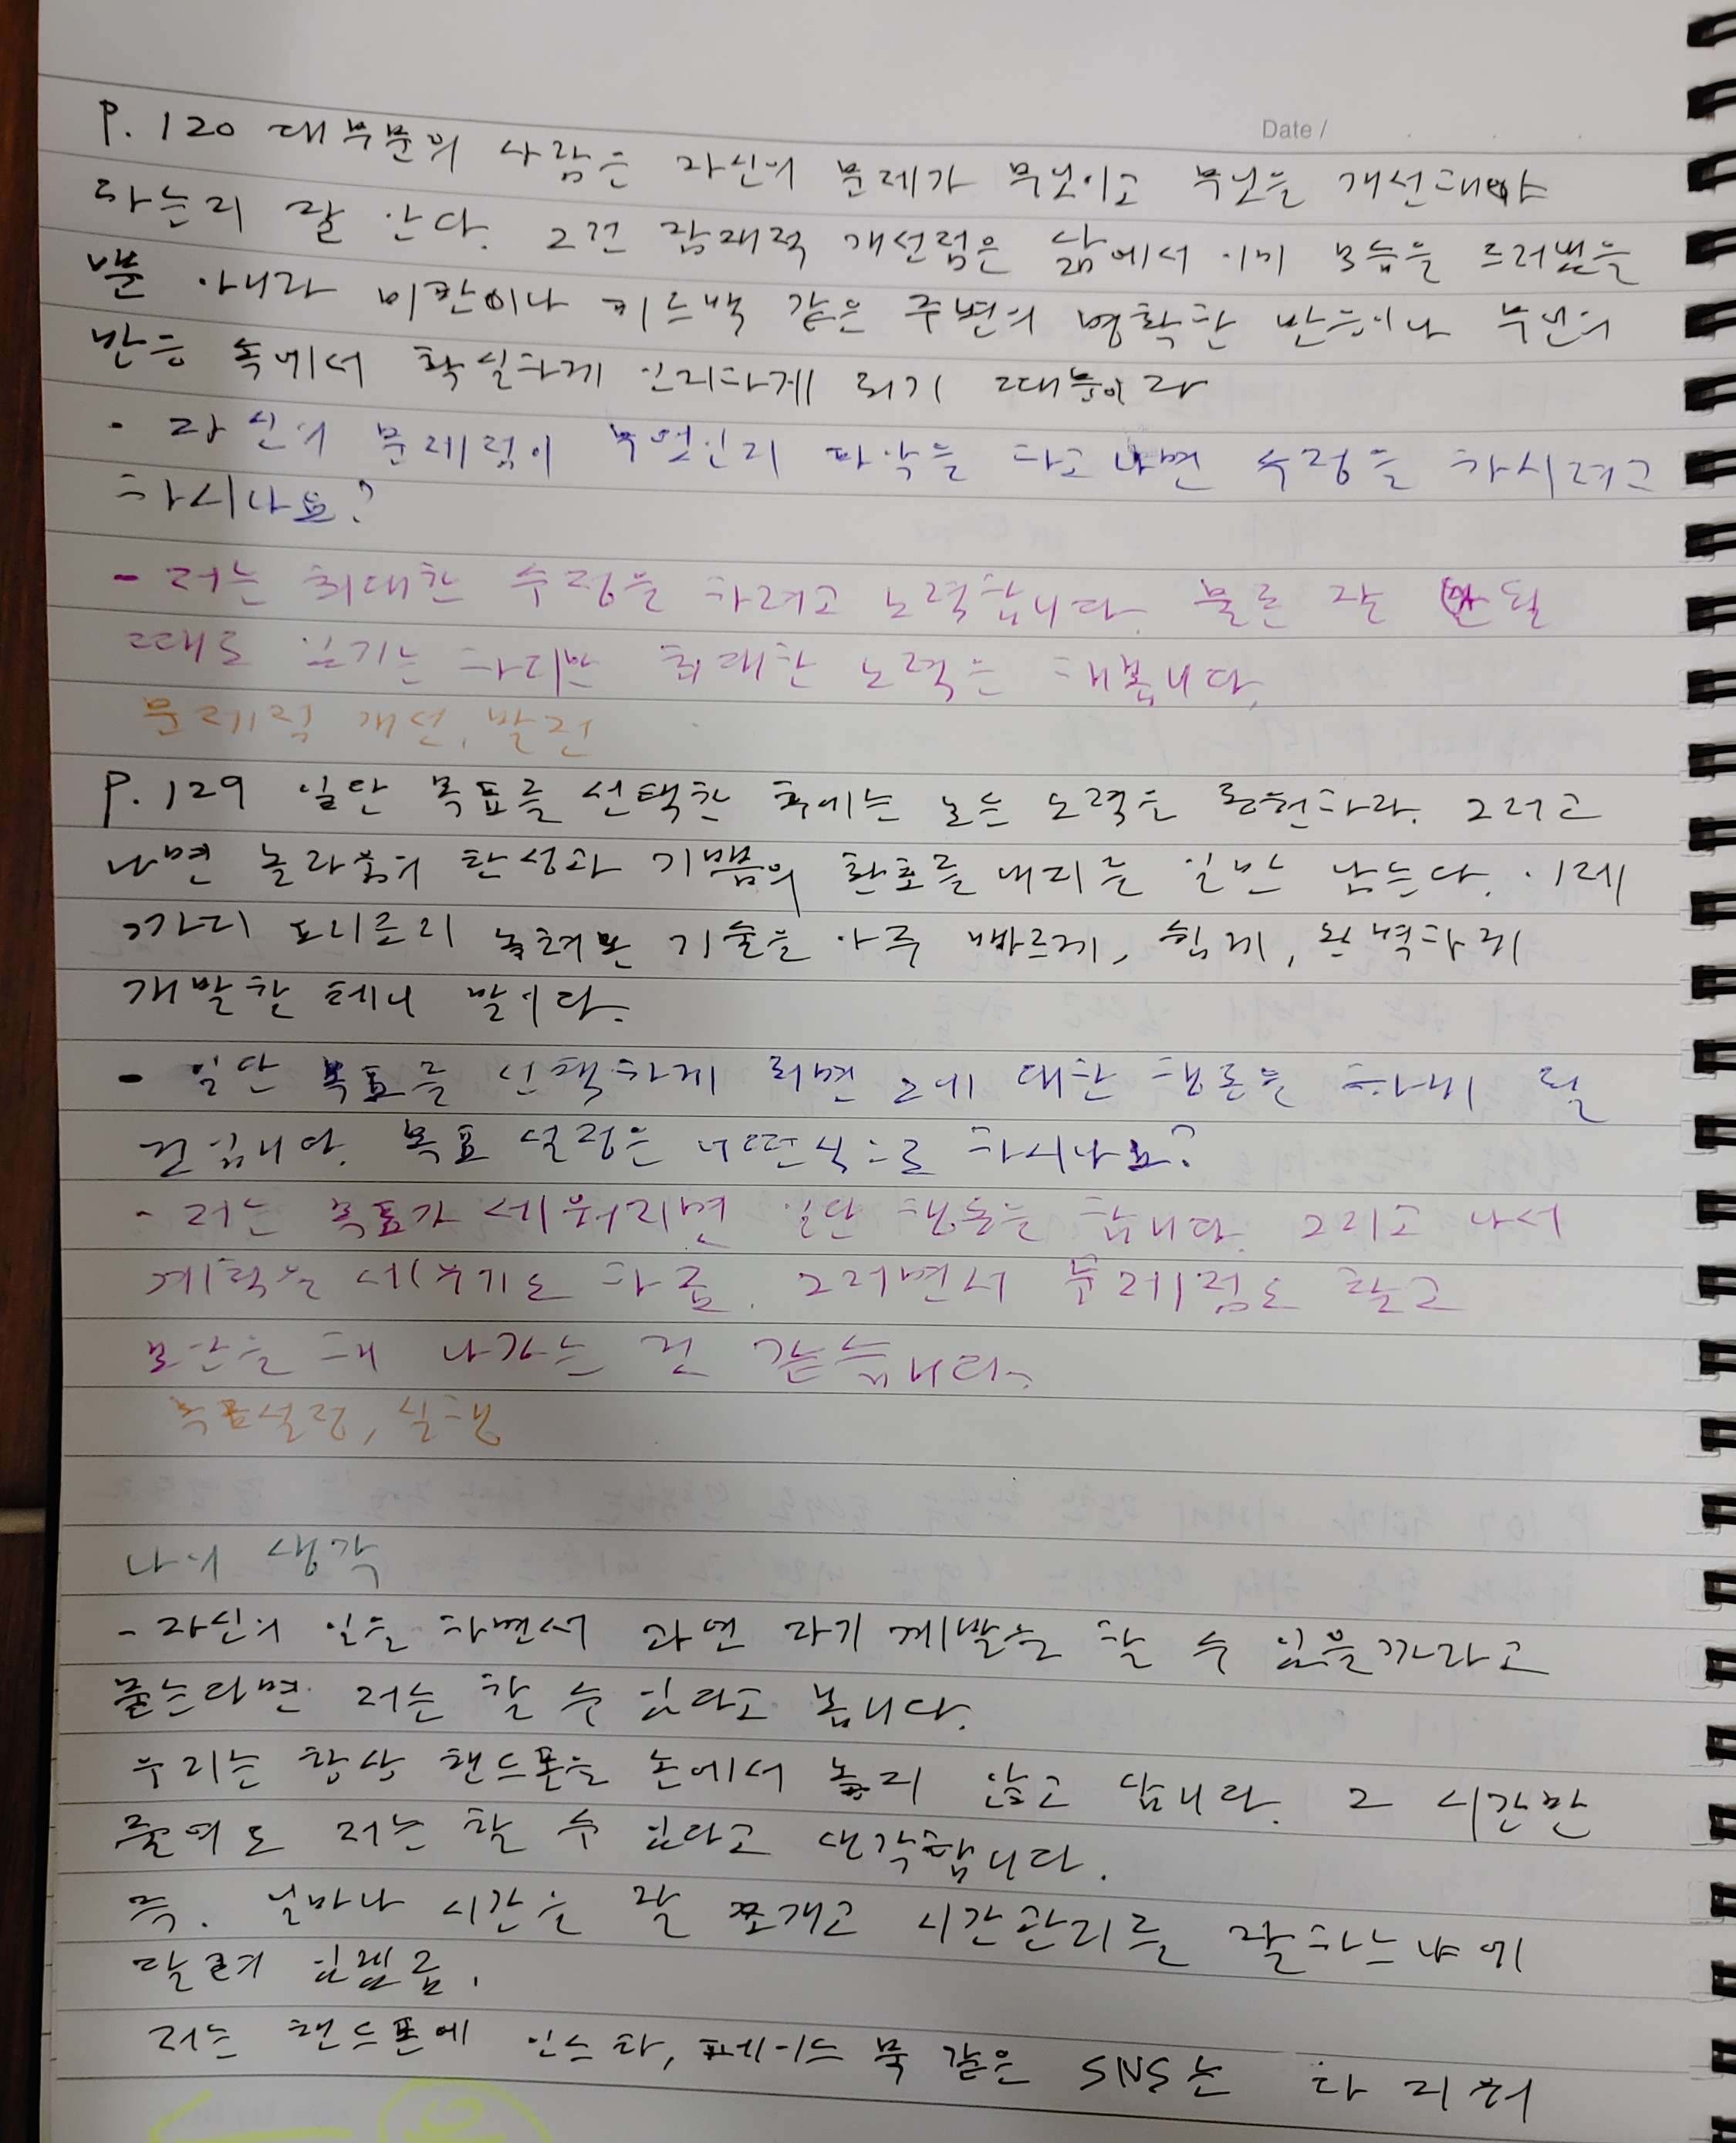 P. 120 대부분의 사람은 자신의 문제가 무엇이고 무엇을 개선해야
하는지 잘 안다. 그건 잠재적 개선점은 삶에서 이미 모습을 드러냈을
뿐 아니라 비판이나 피드백 같은 주변의 명확한 반응이나 무언의
반응 속에서 확실하게 인지하게 되기 때문이라
- 자신의 문제점이 무엇인지 파악을 하고 나면 수정을 하시려고
하시나요?
- 저는 최대한 수정을 하려고 노력합니다. 물론 잘 안될
때도 있기는 하지만 최대한 노력은 해봅니다.
문제의 개선, 발전
P. 129 일단 목표를 선택한 후에는 모든 노력을 동원하라. 그러고
나면 놀라움의 탄성과 기쁨의 환호를 내지를 일만 남는다. 이제
까지 포니로리 눅혀본 기술을 아주 빠르게, 쉽게, 완벽하게
개발할 테니 말이다.
- 일단 목표를 선택하게 되면 그에 대한 행동을 하게 될
건입니다. 목표 설정은 어떤식으로 하시나요?
- 저는 목표가 세워지면 일단 행동을 합니다. 그리고 나서
계획을 세우기도 하죠. 그러면서 문제점도 찾고
보완을 해 나가는 것 같습니다.
목표설정, 실행
나의 생각
- 자신의 일을 하면서 과연 자기 계발을 할 수 있을까라고
묻는다면 저는 할 수 있다고 봅니다.
우리는 항상 핸드폰을 손에서 놓지 않고 삽니다. 그 시간만
줄여도 저는 할 수 있다고 생각합니다.
즉. 얼마나 시간을 잘 쪼개고 시간관리를 잘하느냐에
달려 있겠죠.
저는 핸드폰에 인스타, 페이스 북 같은 SNS는 다 지워